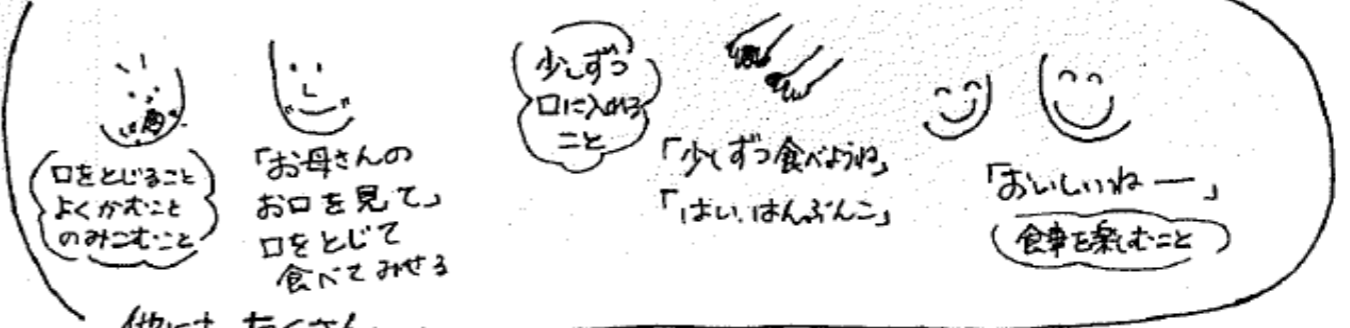 口をとじること
よくかむこと
のみこむこと
「お母さんの
お口を見て」
口をとじて
食べてみせる
少しずつ
口に入れる
こと
「少しずつ食べようね」
「はい、はんぶんこ」
「おいしいねー」
食事を楽しむこと
他にも たくさん